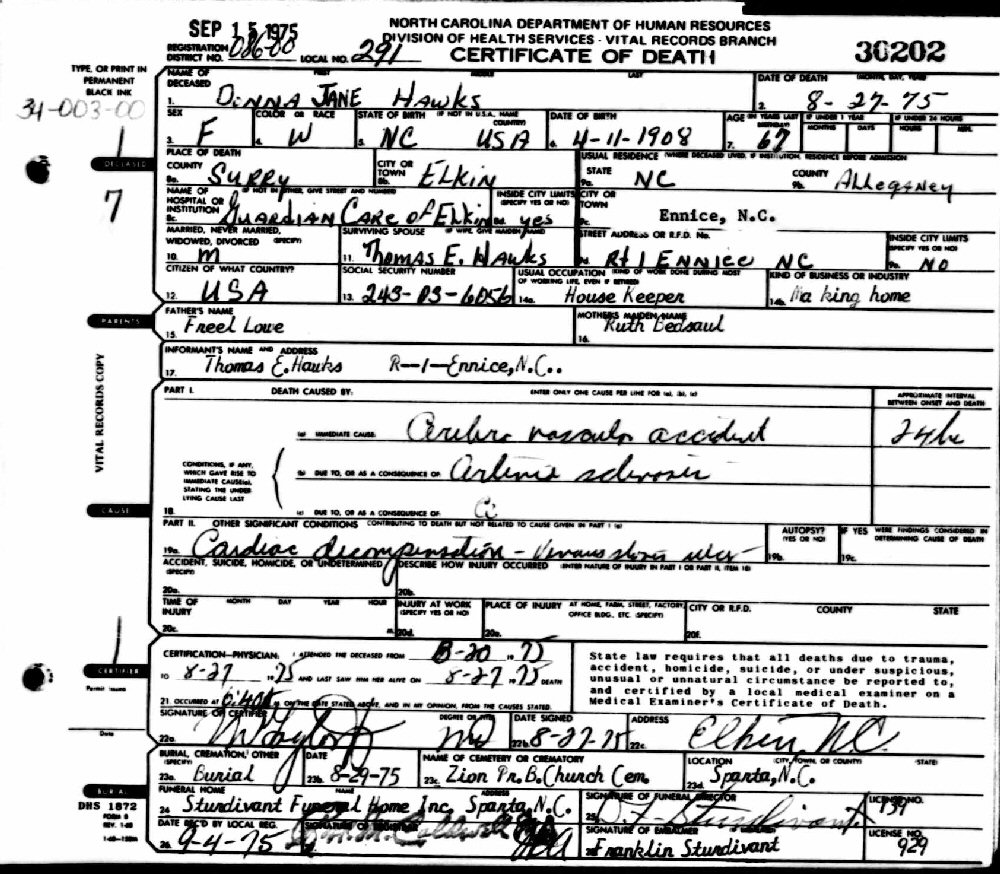 SEP 15 1975
NORTH CAROLINA DEPARTMENT OF HUMAN RESOURCES
DIVISION OF HEALTH SERVICES - VITAL RECORDS BRANCH
REGISTRATION DISTRICT NO. 086-00 LOCAL NO. 291
CERTIFICATE OF DEATH
30202
TYPE, OR PRINT IN PERMANENT BLACK INK
34-003-00
NAME OF DECEASED FIRST MIDDLE LAST
DATE OF DEATH (MONTH, DAY, YEAR)
1. DONNA JANE HAWKS
2. 8-27-75
SEX
COLOR OR RACE
STATE OF BIRTH (IF NOT IN U.S.A. NAME COUNTRY)
DATE OF BIRTH
AGE IN YEARS LAST BIRTHDAY
IF UNDER 1 YEAR
MONTHS DAYS
IF UNDER 24 HOURS
HOURS MIN.
3. F
4. W
5. NC USA
6. 4-11-1908
7. 67
DECEASED
7
PLACE OF DEATH
USUAL RESIDENCE (WHERE DECEASED LIVED. IF INSTITUTION, RESIDENCE BEFORE ADMISSION)
COUNTY
8a. SURRY
CITY OR TOWN
8b. ELKIN
STATE
9a. NC
COUNTY
9b. Allegeney
NAME OF HOSPITAL OR INSTITUTION (IF NOT IN EITHER, GIVE STREET AND NUMBER)
8c. GUARDIAN CARE OF ELKIN
INSIDE CITY LIMITS (SPECIFY YES OR NO)
8d. yes
CITY OR TOWN
9c. Ennice, N.C.
MARRIED, NEVER MARRIED, WIDOWED, DIVORCED (SPECIFY)
10. M
SURVIVING SPOUSE (IF WIFE, GIVE MAIDEN NAME)
11. Thomas E. Hawks
STREET ADDRESS OR R.F.D. No.
9d. Rt 1 ENNICE NC
INSIDE CITY LIMITS (SPECIFY YES OR NO)
9e. NO
CITIZEN OF WHAT COUNTRY?
12. USA
SOCIAL SECURITY NUMBER
13. 243-03-6056
USUAL OCCUPATION (KIND OF WORK DONE DURING MOST OF WORKING LIFE, EVEN IF RETIRED)
14a. House Keeper
KIND OF BUSINESS OR INDUSTRY
14b. Making home
PARENTS
FATHER'S NAME
15. Freel Lowe
MOTHER'S MAIDEN NAME
16. Ruth Bedsaul
INFORMANT'S NAME AND ADDRESS
17. Thomas E. Hawks R-1-Ennice, N.C..
VITAL RECORDS COPY
PART I. DEATH CAUSED BY: ENTER ONLY ONE CAUSE PER LINE FOR (a), (b), (c)
APPROXIMATE INTERVAL BETWEEN ONSET AND DEATH
(a) IMMEDIATE CAUSE: Cerebro vascular accident
24 hr
CONDITIONS, IF ANY, WHICH GAVE RISE TO IMMEDIATE CAUSE(a), STATING THE UNDERLYING CAUSE LAST
(b) DUE TO, OR AS A CONSEQUENCE OF: Arterio sclerosis
CAUSE
18. (c) DUE TO, OR AS A CONSEQUENCE OF:
PART II. OTHER SIGNIFICANT CONDITIONS CONTRIBUTING TO DEATH BUT NOT RELATED TO CAUSE GIVEN IN PART I (a)
AUTOPSY? (YES OR NO)
IF YES WERE FINDINGS CONSIDERED IN DETERMINING CAUSE OF DEATH
19a. Cardiac decompensation - ulcer
19b.
19c.
ACCIDENT, SUICIDE, HOMICIDE, OR UNDETERMINED (SPECIFY)
DESCRIBE HOW INJURY OCCURRED (ENTER NATURE OF INJURY IN PART I OR PART II, ITEM 18)
20a.
20b.
TIME OF INJURY MONTH DAY YEAR HOUR
INJURY AT WORK (SPECIFY YES OR NO)
PLACE OF INJURY AT HOME, FARM, STREET, FACTORY, OFFICE BLDG., ETC. (SPECIFY)
CITY OR R.F.D. COUNTY STATE
20c. M.
20d.
20e.
20f.
CERTIFIER
CERTIFICATION—PHYSICIAN: I ATTENDED THE DECEASED FROM 8-20 19 75
TO 8-27 19 75 AND LAST SAW HIM HER ALIVE ON 8-27 19 75 DEATH
21. OCCURRED AT M. ON THE DATE STATED ABOVE, AND IN MY OPINION, FROM THE CAUSES STATED.
State law requires that all deaths due to trauma,
accident, homicide, suicide, or under suspicious,
unusual or unnatural circumstance be reported to,
and certified by a local medical examiner on a
Medical Examiner's Certificate of Death.
Permit Issued
Date
SIGNATURE OF CERTIFIER
22a.
DEGREE OR TITLE
MD
DATE SIGNED
22b. 8-27-75
ADDRESS
22c. Elkin, NC.
BURIAL, CREMATION, OTHER (SPECIFY)
23a. Burial
DATE
23b. 8-29-75
NAME OF CEMETERY OR CREMATORY
23c. Zion Pr. B. Church Cem.
LOCATION (CITY, TOWN, OR COUNTY) (STATE)
23d. Sparta, N.C.
BURIAL
DHS 1872
FORM 8
REV. 1-68
FUNERAL HOME NAME ADDRESS
24. Sturdivant Funeral Home Inc, Sparta, N.C.
SIGNATURE OF FUNERAL DIRECTOR
25. D.F. Sturdivant
LICENSE NO.
DATE REC'D BY LOCAL REG.
26. 9-4-75
SIGNATURE OF REGISTRAR
SIGNATURE OF EMBALMER
Franklin Sturdivant
LICENSE NO.
929